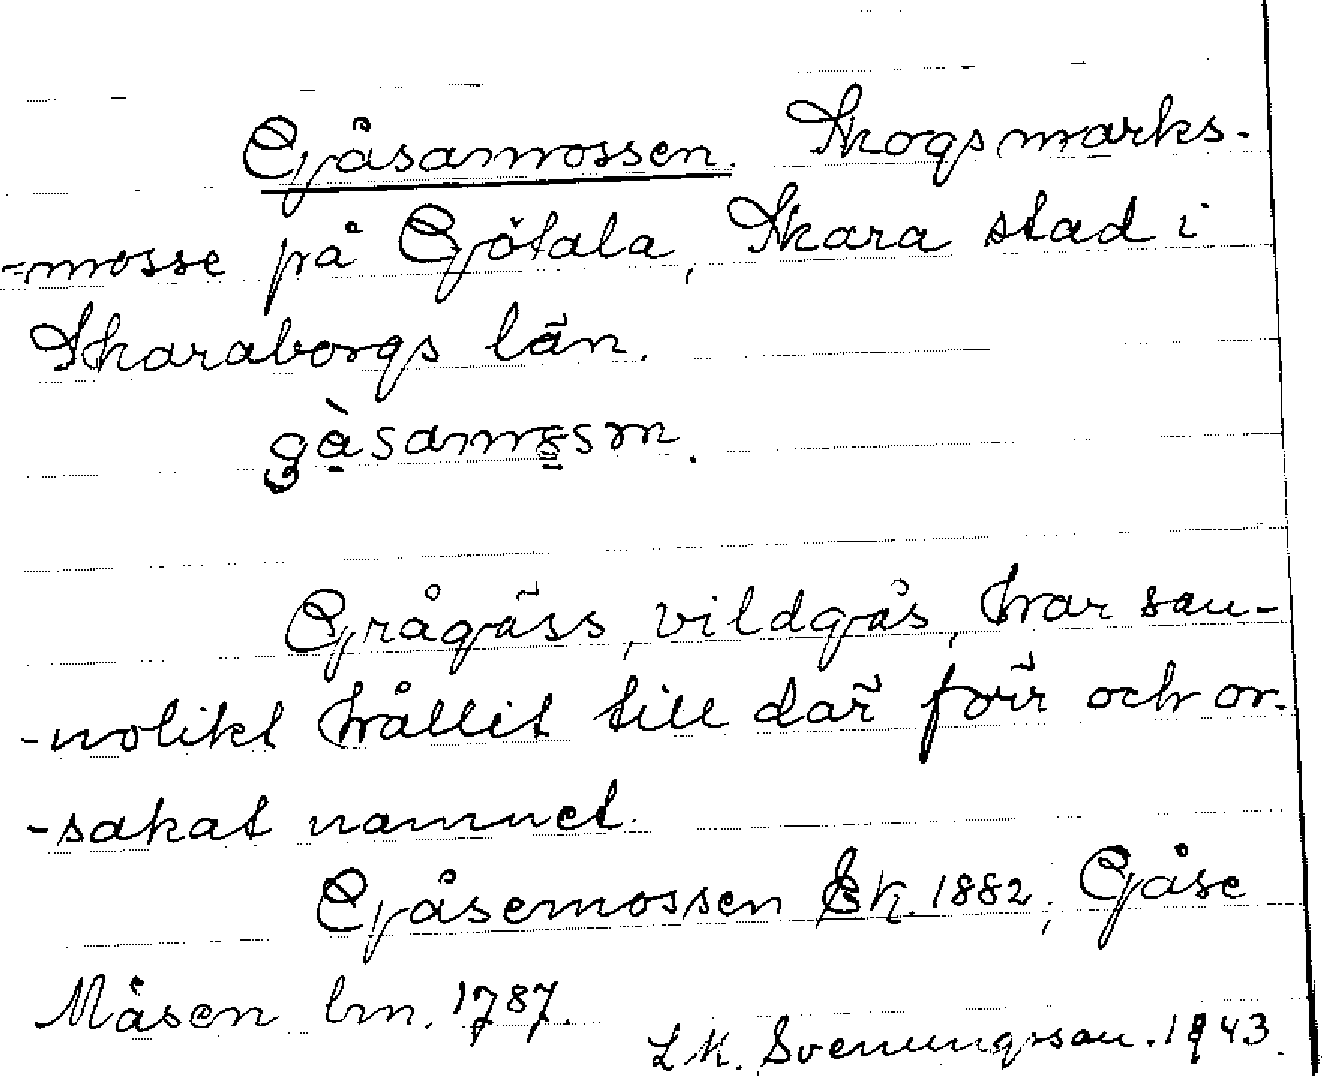 Gåsamossen. Skogsmarks-
-mosse på Götala, Skara stad i
Skaraborgs län.
gàsamossn.
Grågäss, vildgås, har san-
-nolikt hållit till där förr och or-
-sakat namnet.
Gåsemossen Ek. 1882; Gåse
Måsen lm. 1787.
L K. Svenungsson. 1943.